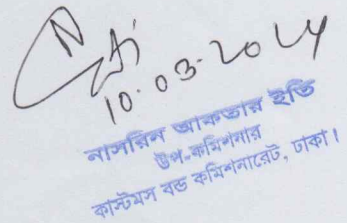 10.03.2024
নাসরিন আকতার ইতি
উপ-কমিশনার
কাস্টমস বন্ড কমিশনারেট, ঢাকা।